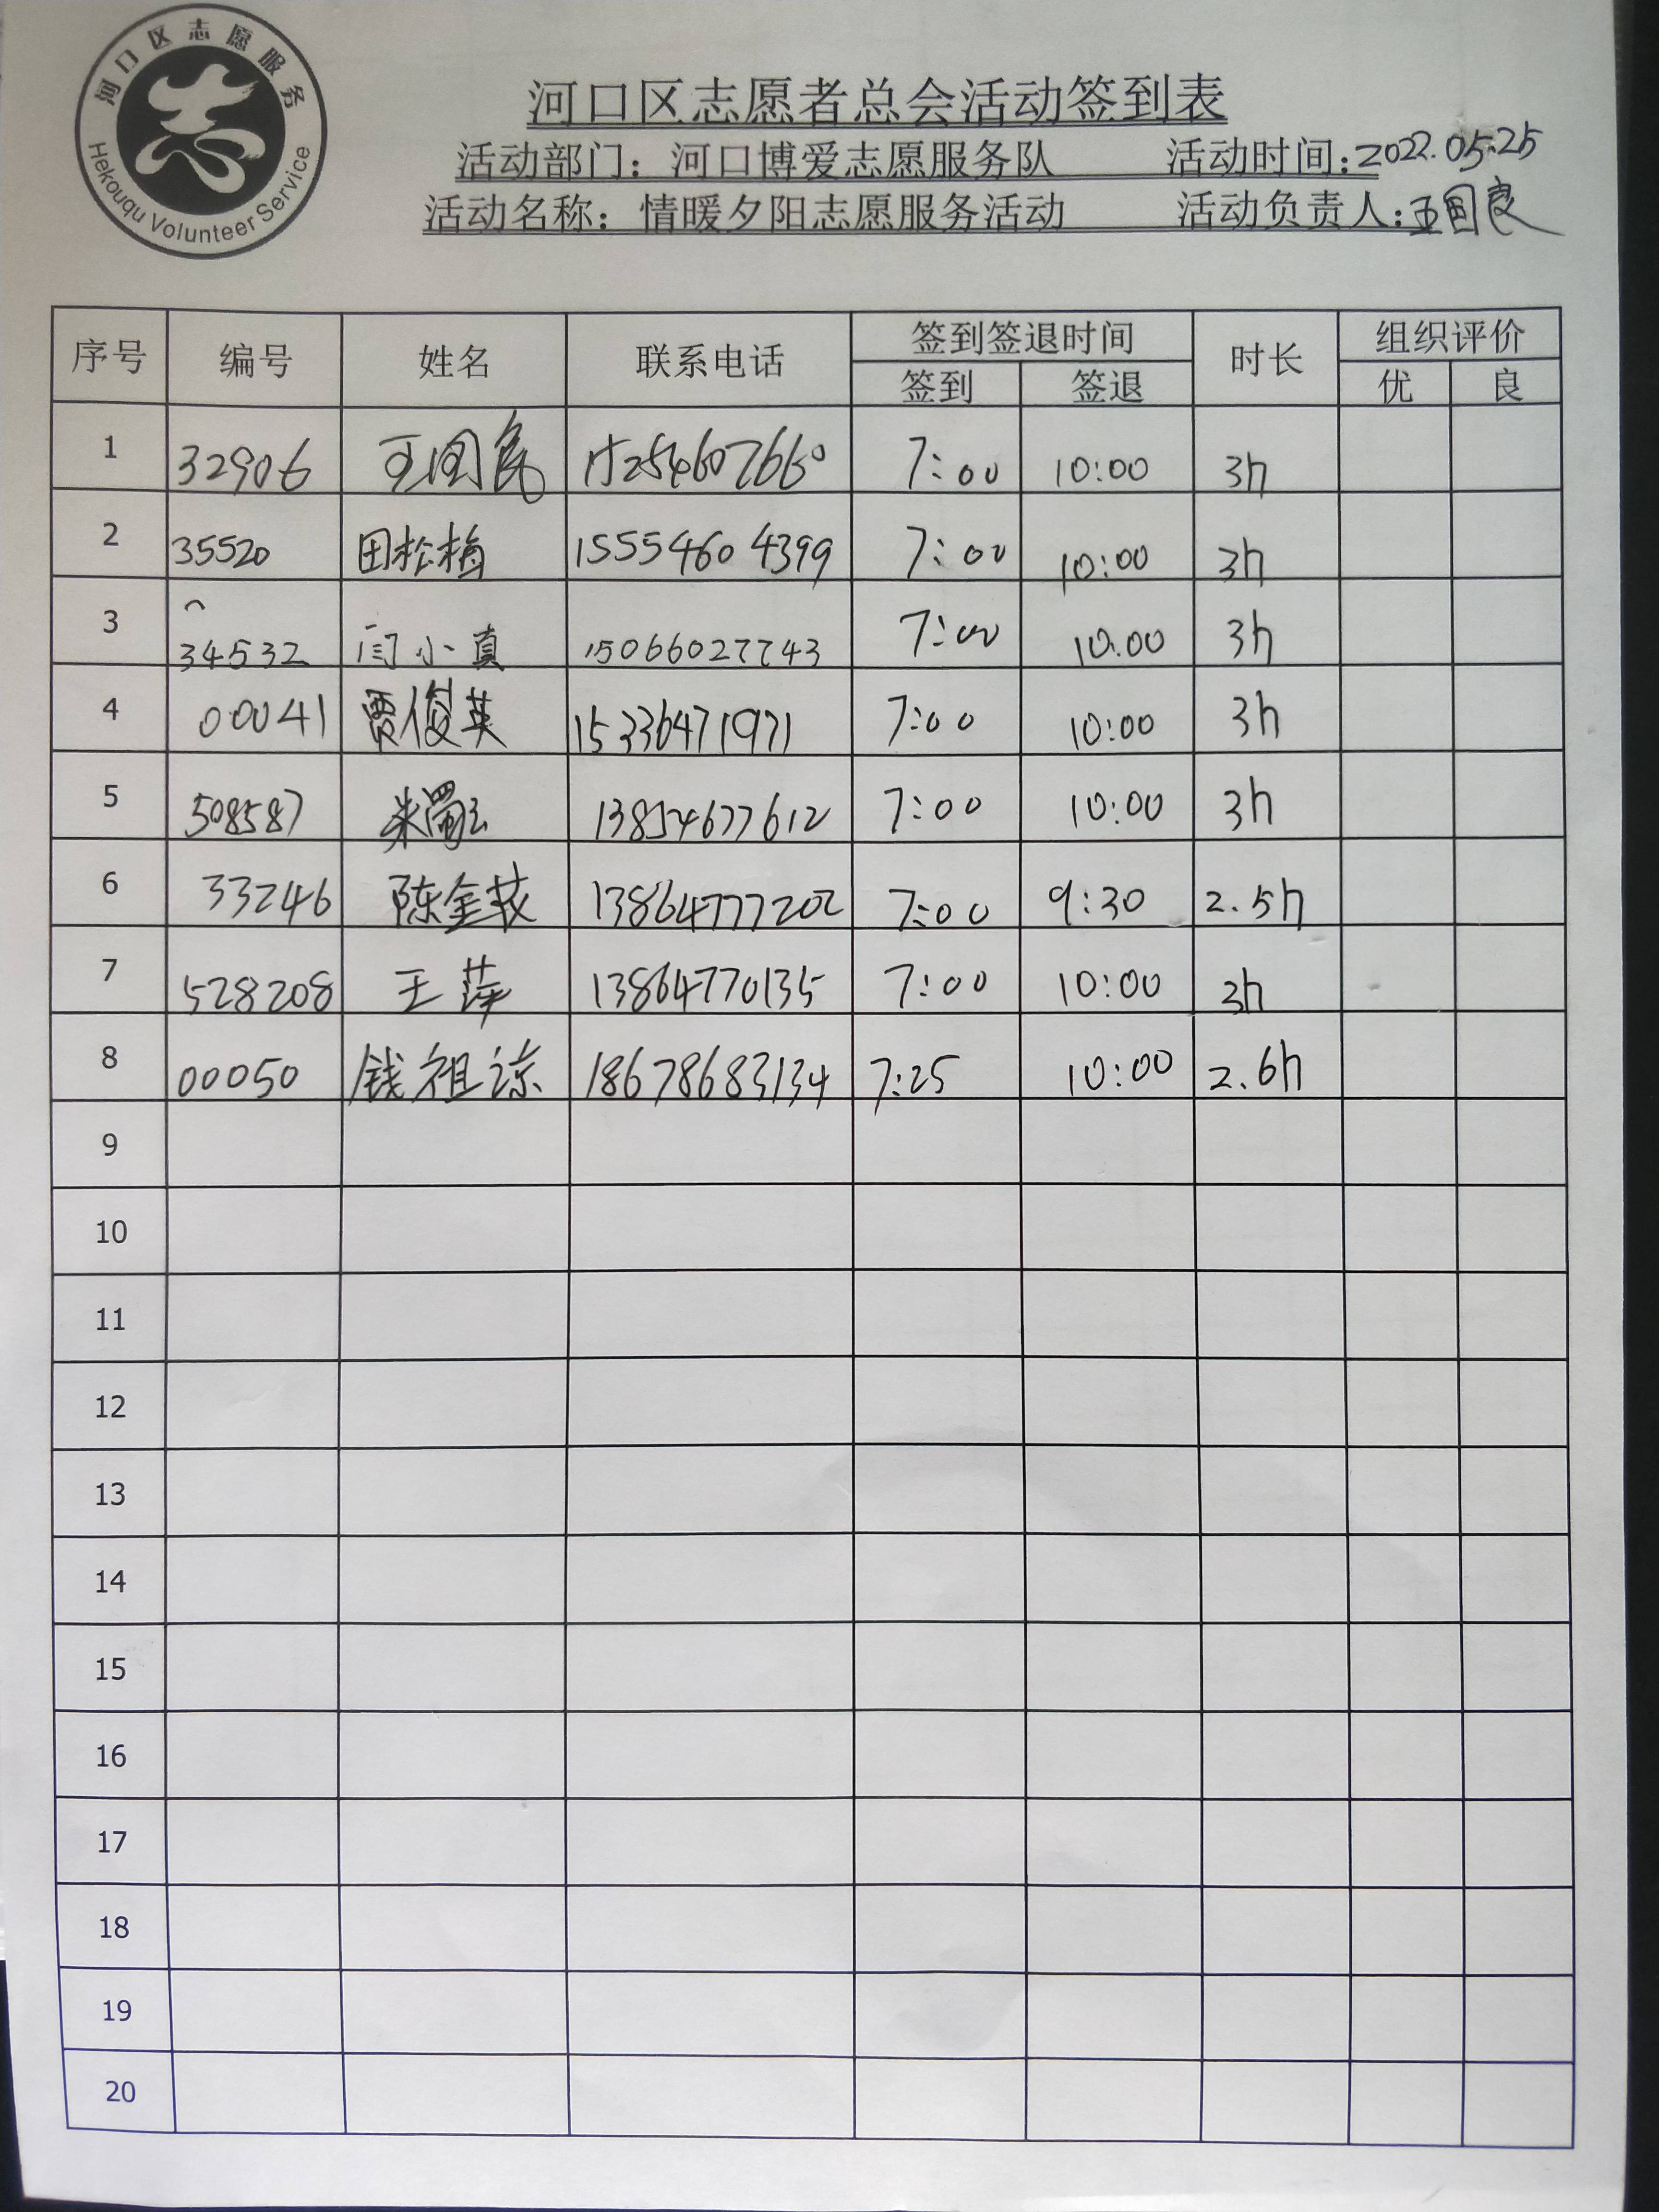 河口区志愿服务
Hekouqu Volunteer Service
河口区志愿者总会活动签到表
活动部门：河口博爱志愿服务队 活动时间：2022.05.25
活动名称：情暖夕阳志愿服务活动 活动负责人：王国良
序号 编号 姓名 联系电话 签到签退时间 时长 组织评价
签到 签退 优 良
1 32906 王国良 15254607660 7:00 10:00 3h
2 35520 田松梅 15554604399 7:00 10:00 3h
3 34532 闫小真 15066027743 7:00 10:00 3h
4 00041 贾俊英 15336471971 7:00 10:00 3h
5 508587 13854677612 7:00 10:00 3h
6 33246 陈金 13864777202 7:00 9:30 2.5h
7 528208 王萍 13864770135 7:00 10:00 3h
8 00050 钱祖谅 18678683134 7:25 10:00 2.6h
9
10
11
12
13
14
15
16
17
18
19
20